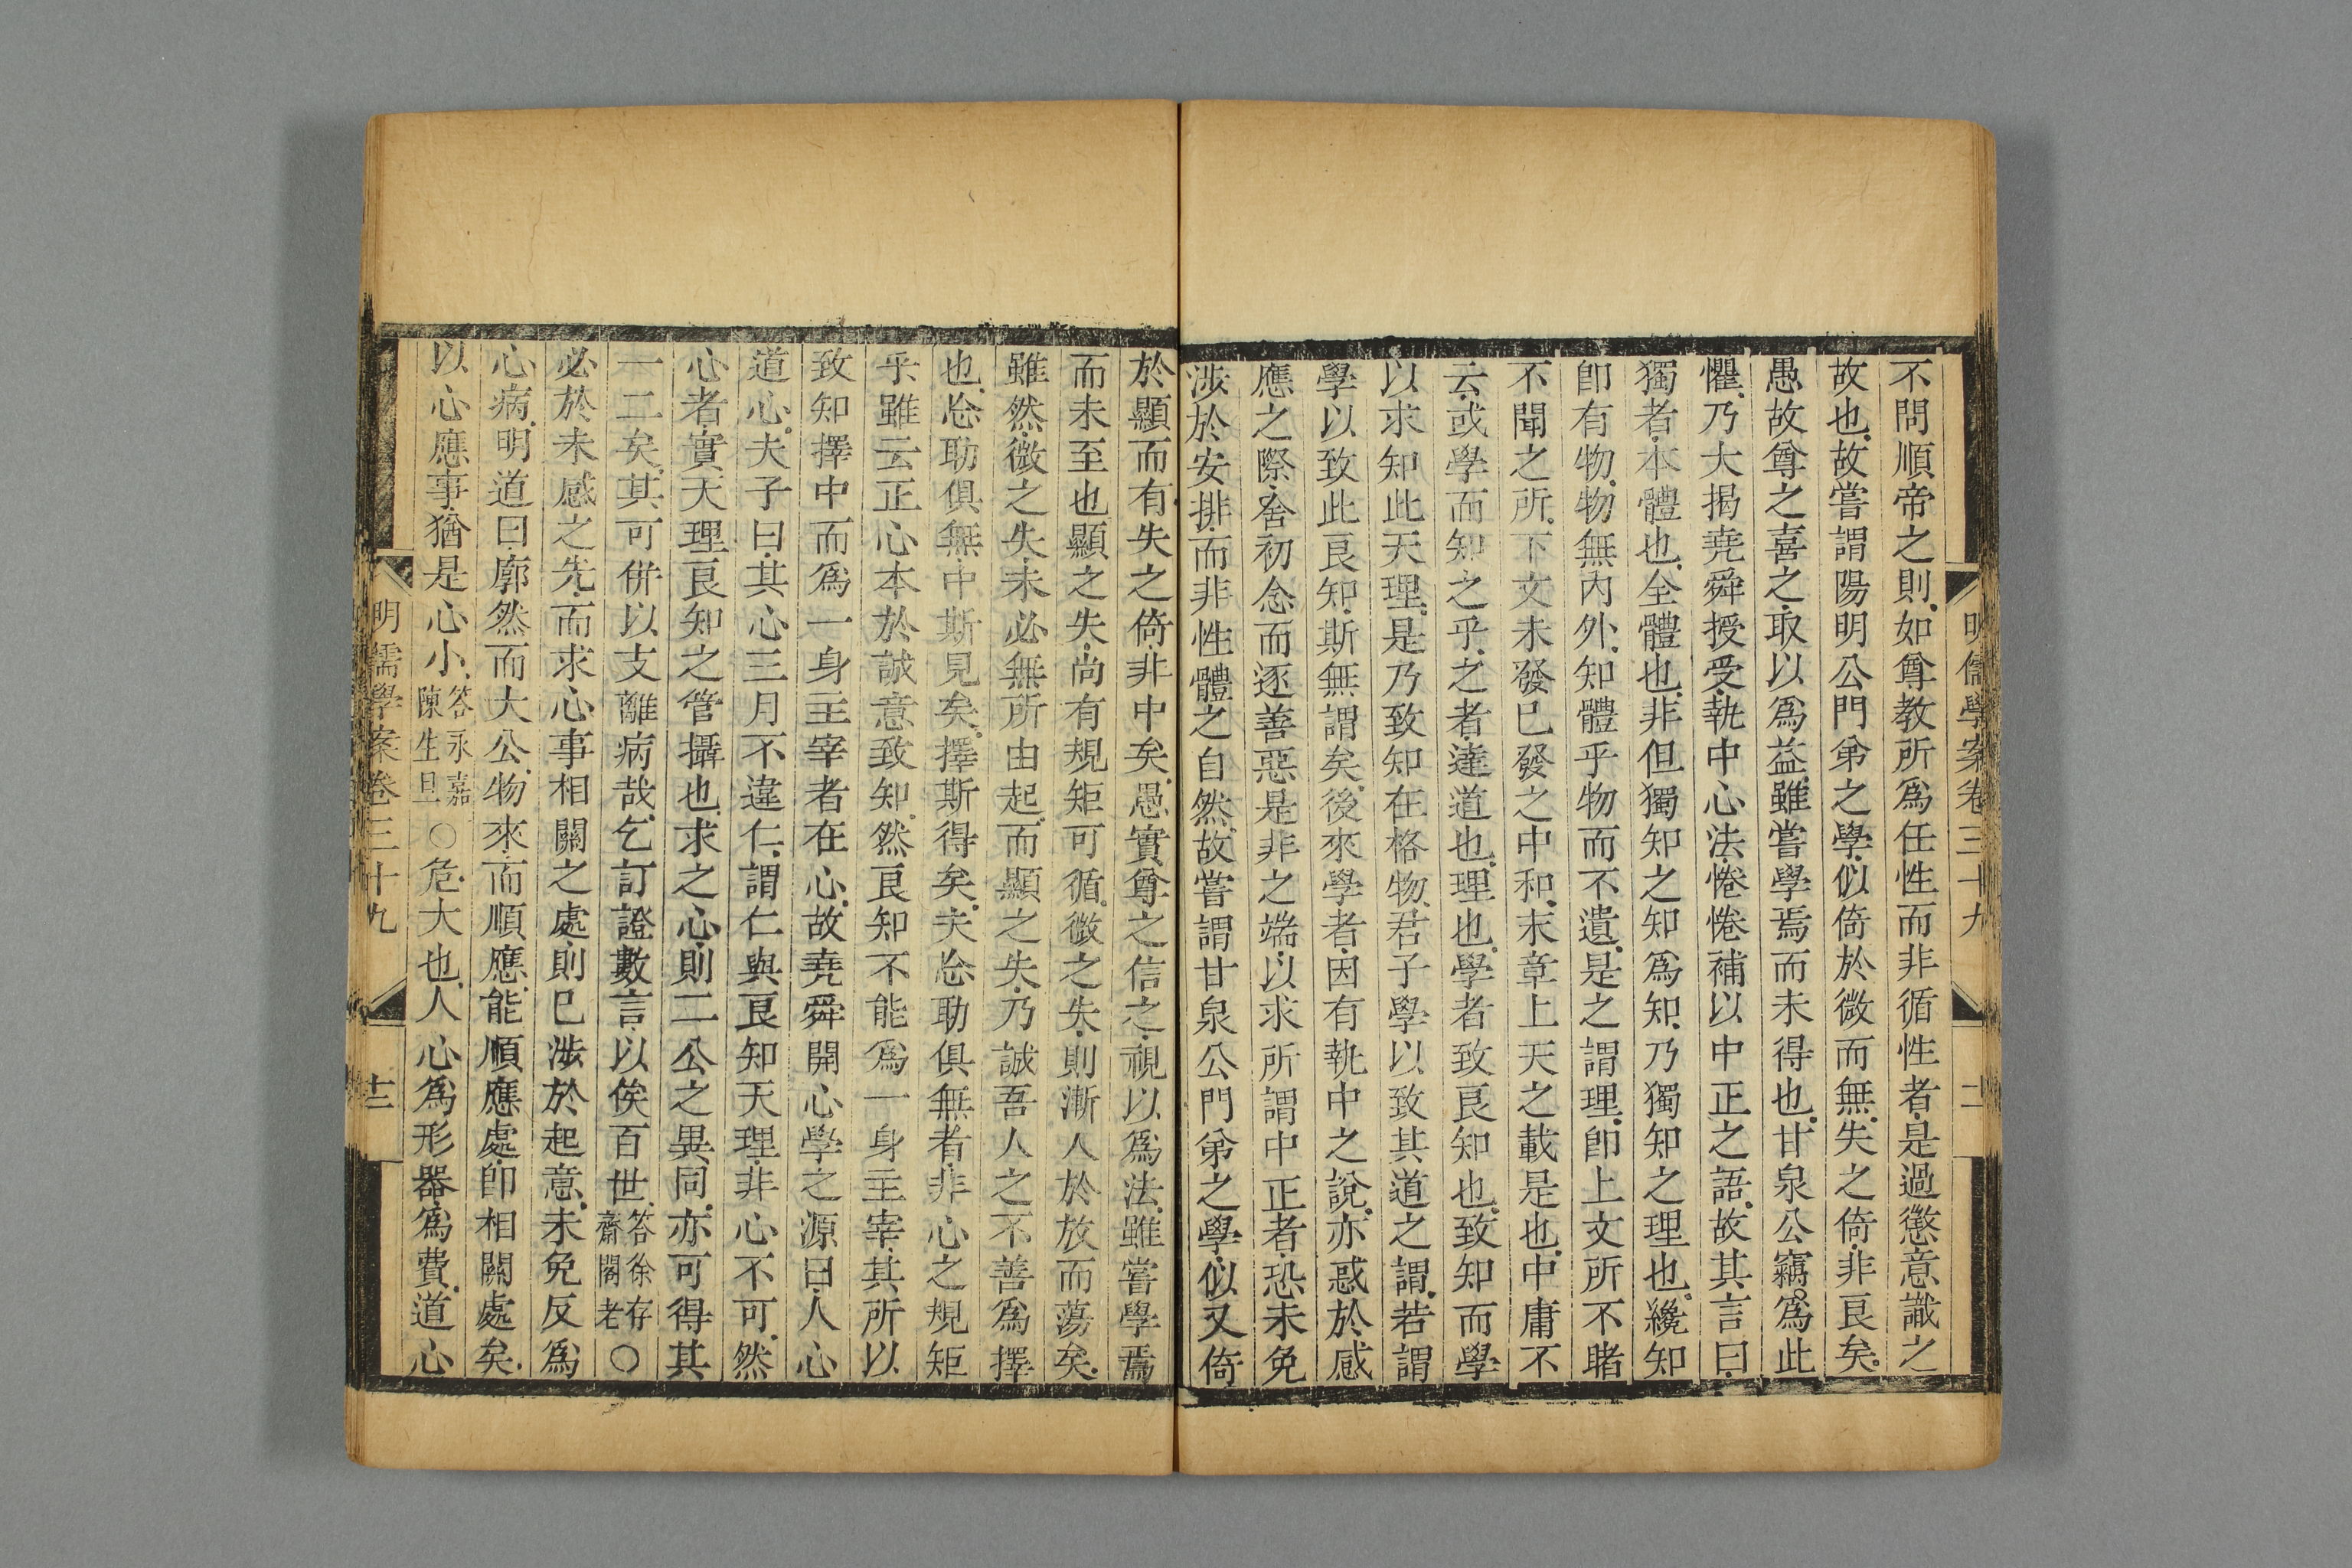 明儒學案卷三十九
十二
不問順帝之則如尊教所爲任性而非循性者是過懲意識之
故也故嘗謂陽明公門弟之學似倚於微而無失之倚非良矣
愚故尊之喜之取以爲益雖嘗學焉而未得也甘泉公竊爲此
懼乃大揭堯舜授受執中心法惓惓補以中正之語故其言曰
獨者本體也全體也非但獨知之知爲知乃獨知之理也纔知
卽有物物無內外知體乎物而不遺是之謂理卽上文所不睹
不聞之所下文未發已發之中和末章上天之載是也中庸不
云或學而知之乎之者達道也理也學者致良知也致知而學
以求知此天理是乃致知在格物君子學以致其道之謂若謂
學以致此良知斯無謂矣後來學者因有執中之說亦惑於感
應之際舍初念而逐善惡是非之端以求所謂中正者恐未免
涉於安排而非性體之自然故嘗謂甘泉公門弟之學似又倚
於顯而有失之倚非中矣愚實尊之信之視以爲法雖嘗學焉
而未至也顯之失尚有規矩可循微之失則漸人於放而蕩矣
雖然微之失未必無所由起而顯之失乃誠吾人之不善爲擇
也忩助俱無中斯見矣擇斯得矣夫忩助俱無者非心之規矩
乎雖云正心本於誠意致知然良知不能爲一身主宰其所以
致知擇中而爲一身主宰者在心故堯舜開心學之源曰人心
道心夫子曰其心三月不違仁謂仁與良知天理非心不可然
心者實天理良知之管攝也求之心則二公之異同亦可得其
一二矣其可併以支離病哉乞訂證數言以俟百世答徐存齋閣老○
必於未感之先而求心事相關之處則已涉於起意未免反爲
心病明道曰廓然而大公物來而順應能順應處卽相關處矣
以心應事猶是心小答永嘉陳生旦○危大也人心爲形器爲費道心
明儒學案卷三十九
十二